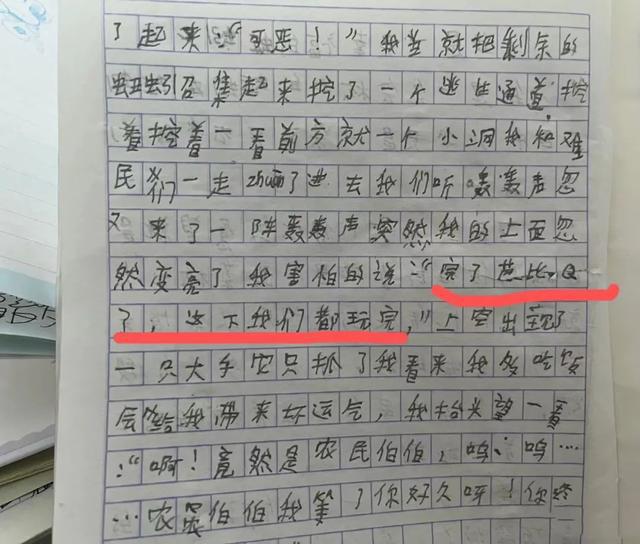 了起来:“可恶！”我岦就把剩余的
蚯蚓召集起来挖了一个逃生通道,挖
着挖着一看前方就一个小洞我和难
民们一走zhuan了进去我们听轰轰声忽
又来了一阵轰轰声突然我的上面忽
然变亮了我害怕的说:“完了芭比Q
了，这下我们都玩完,”上空出现了
一只大手农只抓了我看来我多吃饭
会给我带来坏运气，我抬头望一看
:“啊！竟然是农民伯伯，呜、呜…
…农民伯伯我等了你好久呀！你终